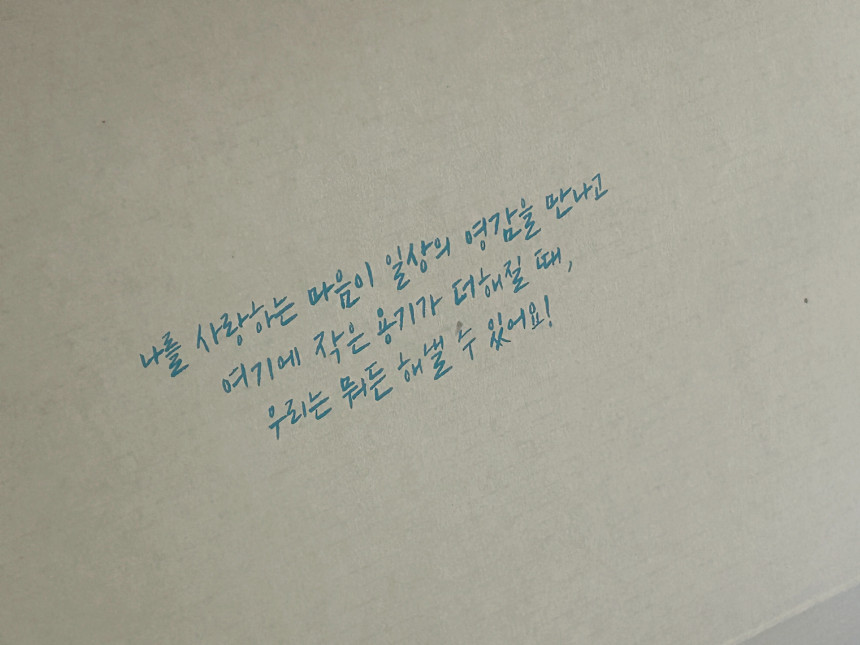 나를 사랑하는 마음이 일상의 영감을 만나고
여기에 작은 용기가 더해질 때,
우리는 뭐든 해낼 수 있어요!